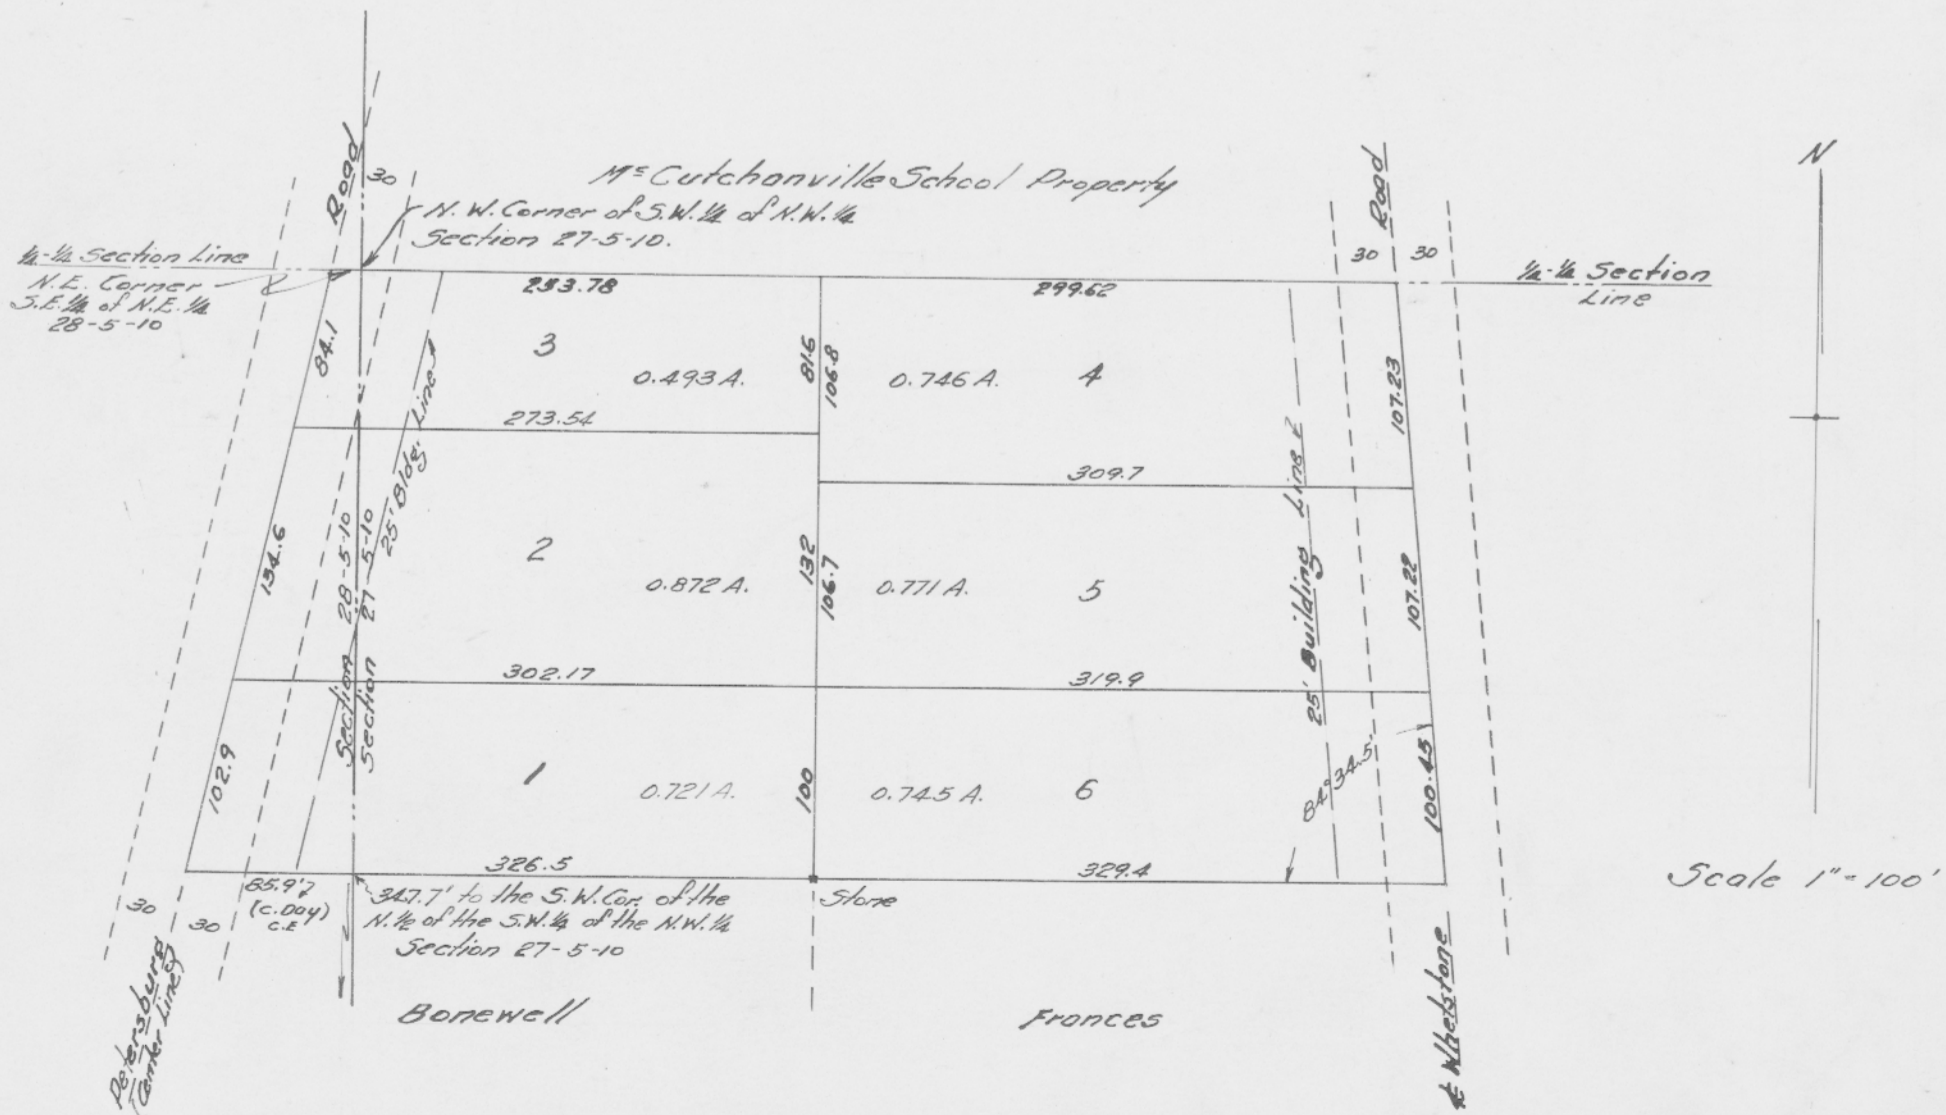 Road
30
Mc Cutchanville School Property
N. W. Corner of S.W. ¼ of N.W. ¼
Section 27-5-10.
Road
30 30
N
¼-¼ Section Line
N.E. Corner
S.E. ¼ of N.E. ¼
28-5-10
¼-¼ Section
Line
253.78
299.62
84.1
3
0.493 A.
81.6
106.8
0.746 A.
4
107.23
273.54
309.7
25' Bldg. Line
134.6
Section 28-5-10
Section 27-5-10
2
0.872 A.
132
106.7
0.771 A.
5
25' Building Line
107.22
302.17
319.9
102.9
1
0.721 A.
100
0.745 A.
6
84° 34.5'
100.45
326.5
329.4
Scale 1" = 100'
30
30
85.9'
(C. Day)
C.E
347.7' to the S.W. Cor. of the
N. ½ of the S.W. ¼ of the N.W. ¼
Section 27-5-10
Stone
Petersburg
(Center Line)
Bonewell
Frances
℄ Whetstone